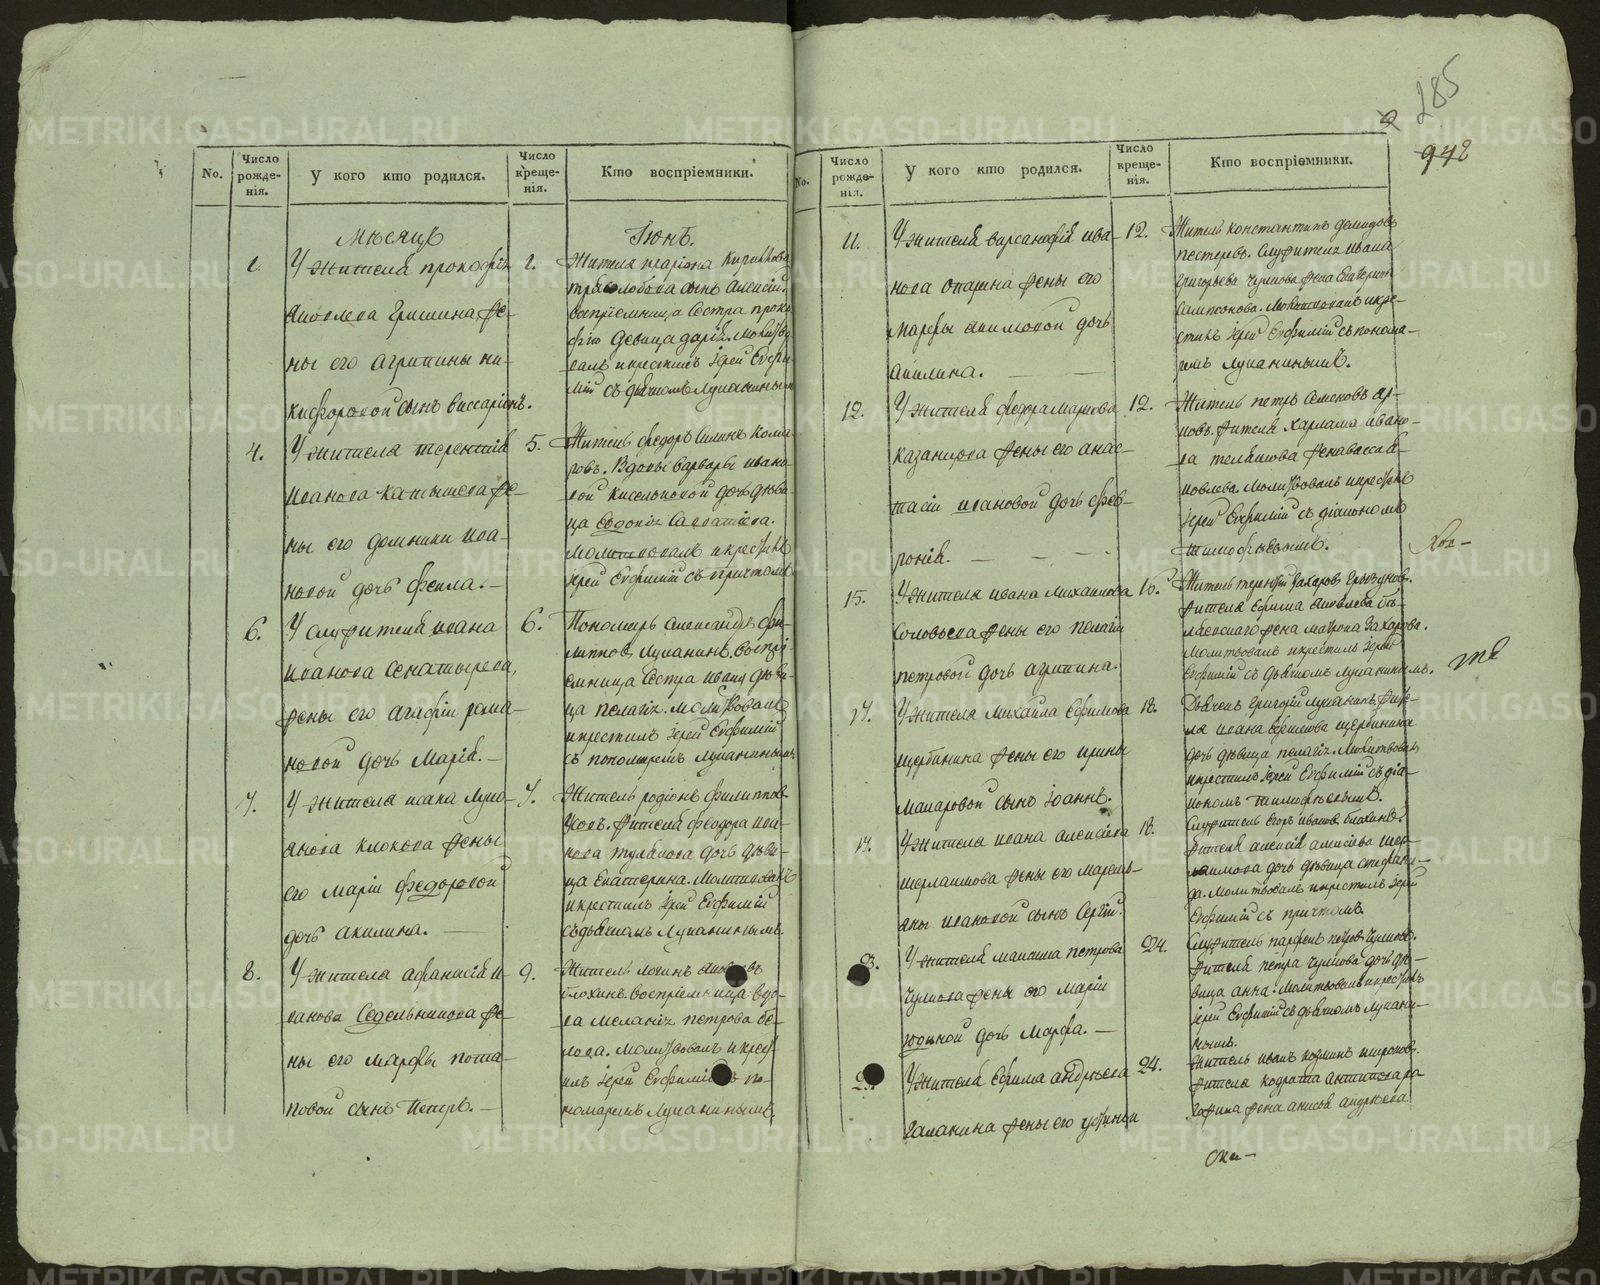 285
942
No.
Число рожде-нія.
У кого кто родился.
Число креще-нія.
Кто воспріемники.
Мѣсяцъ Іюнь.
1.
У жителя прокофія
яковлева Гришина же-
ны его агрипины ни-
кифоровой сынъ виссаріонъ.
2.
сынъ Алексій.
воспріемница Сестра проко
фію девица дарія. Молитво
валъ и крестилъ іерей Евфи-
мій съ дьячкомъ Лупанинымъ
4.
У жителя терентія
иванова катышева же-
ны его домники ива-
новой дочь фекла.
5.
Житель федоръ Силинъ кома-
ровъ. Вдовы варвары ивано-
вой кисельковой дочь дѣви-
ца Евдокія Савватіева.
Молитвовалъ и крестилъ
іерей Евфимій съ причтомъ.
6.
У служителя ивана
иванова Сенатырева,
жены его агафіи рома-
новой дочь Марія.
6.
Пономарь александръ фи-
липповъ Лупанинъ. воспрі-
емница Сестра ивану дѣви-
ца пелагія. молитвовалъ
и крестилъ іерей Евфимій
съ пономаремъ Лупанинымъ.
7.
У жителя исака Луко-
янова клокова жены
его маріи федоровой
дочь акилина.
7.
Житель родіонъ филиппов
Усовъ. жителя феодора ива-
нова тулякова дочь дѣви-
ца Екатерина. Молитвовалъ
и крестилъ іерей Евфимій
съ дьячкомъ Лупанинымъ.
8.
У жителя афанасія и-
ванова Седельникова же-
ны его марфы пота-
повой сынъ Петръ.
9.
Житель логинъ яковлевъ
блохинъ. воспріемница вдо-
ва меланія петрова бе-
лова. молитвовалъ и крест-
илъ іерей Евфимій съ по-
номаремъ Лупанинымъ.
No.
Число рожде-нія.
У кого кто родился.
Число креще-нія.
Кто воспріемники.
11.
У жителя варсанофія ива-
нова опарина жены его
марфы акимовой дочь
акилина.
12.
Житель константинъ демидовъ
пестеревъ. Служителя ивана
Григорьева Чупкова жена Екатерина
Сампсонова. Молитвовалъ и кре-
стилъ іерей Евфимій съ понома-
ремъ Лупанинымъ.
12.
У жителя федора маркова
казанцова жены его анас-
тасіи ивановой дочь фев-
ронія.
12.
Житель петръ Семеновъ
жителя Харлама ивано-
ва
Молитвовалъ и крестилъ
іерей Евфимій съ діакономъ
тимофѣевымъ.
15.
У жителя ивана михаилова
Соловьева жены его пелагіи
петровой дочь агрипина.
16.
жителя Ефима яковлева бѣ-
жена матрона Захарова.
Молитвовалъ и крестилъ іерей
Евфимій съ дьячкомъ Лупанинымъ.
17.
У жителя михаила Ефимова
щербинина жены его ирины
макаровой сынъ іоаннъ.
18.
Дьячекъ григорій лупанинъ. жите-
ля ивана Ефимова щербинина
дочь дѣвица пелагія. Молитвовалъ
и крестилъ іерей Евфимій съ діа-
кономъ тимофѣевымъ.
17.
У жителя ивана алексіева
шерлаимова жены его марем-
яны ивановой сынъ Сергій.
18.
Служитель Егоръ ивановъ блохинъ.
жителя алексія алексіева шер-
лаимова дочь дѣвица стефани-
да. Молитвовалъ и крестилъ іерей
Евфимій съ причтомъ.
23.
У жителя максима петрова
Чупкова жены его маріи
дочь Марфа.
24.
Служитель парфенъ петровъ Чупковъ.
жителя петра чупкова дочь дѣ-
вица анна. Молитвовалъ и крестилъ
іерей Евфимій съ дьячкомъ Лупани-
нымъ.
У жителя Ефима андрѣева
галанина жены его
24.
Житель иванъ козминъ широков.
жителя кодрата антипова
жена анисья андрѣева